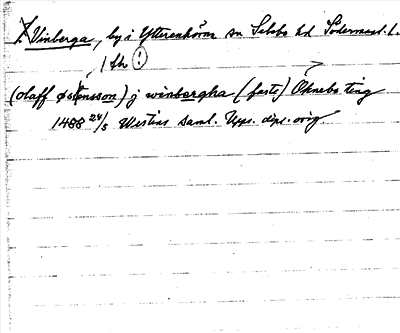 Vinberga, by i Ytterenhörna sn Selebo hd Södermanl. l.
1 fb (!)
(olaff østensson) j winbergha (faste) Oknebo ting
1488 24/5 Westins saml. Upps. dipl. orig.